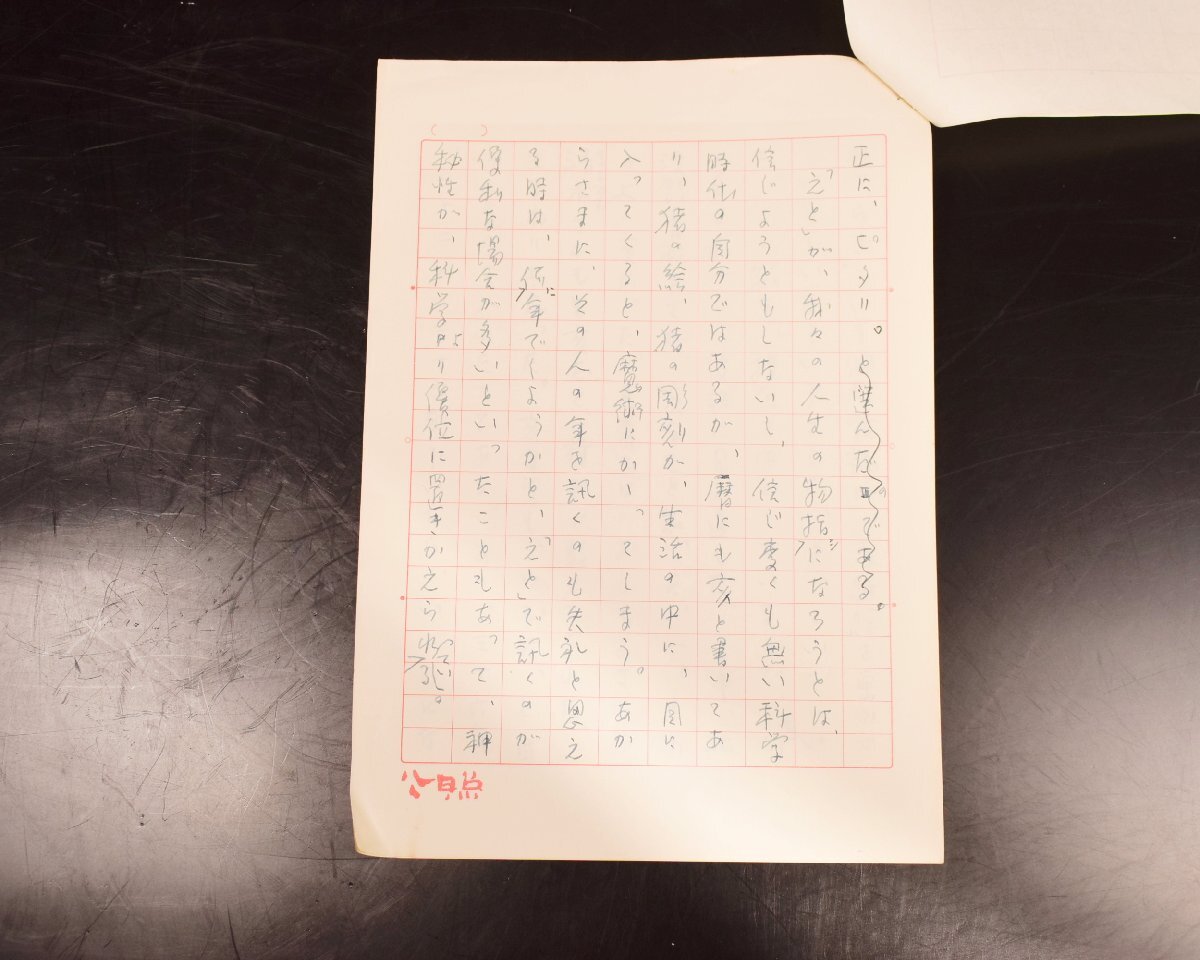 正に、ピタリ。
「えと」が、我々の人生の物指シになろうとは、
信じようともしないし、信じ度くも無い科学
時代の自分ではあるが、暦にも亥と書いてあ
り、猪の絵、猪の彫刻が、生活の中に、目に
入ってくると、魔術にかゝってしまう。あか
らさまに、その人の年を訊くのも失礼と思え
る時は、年でくようかと、「えと」で訊くのが
便利な場合が多いといったこともあって、神
秘性が、科学より優位に置きかえられている。